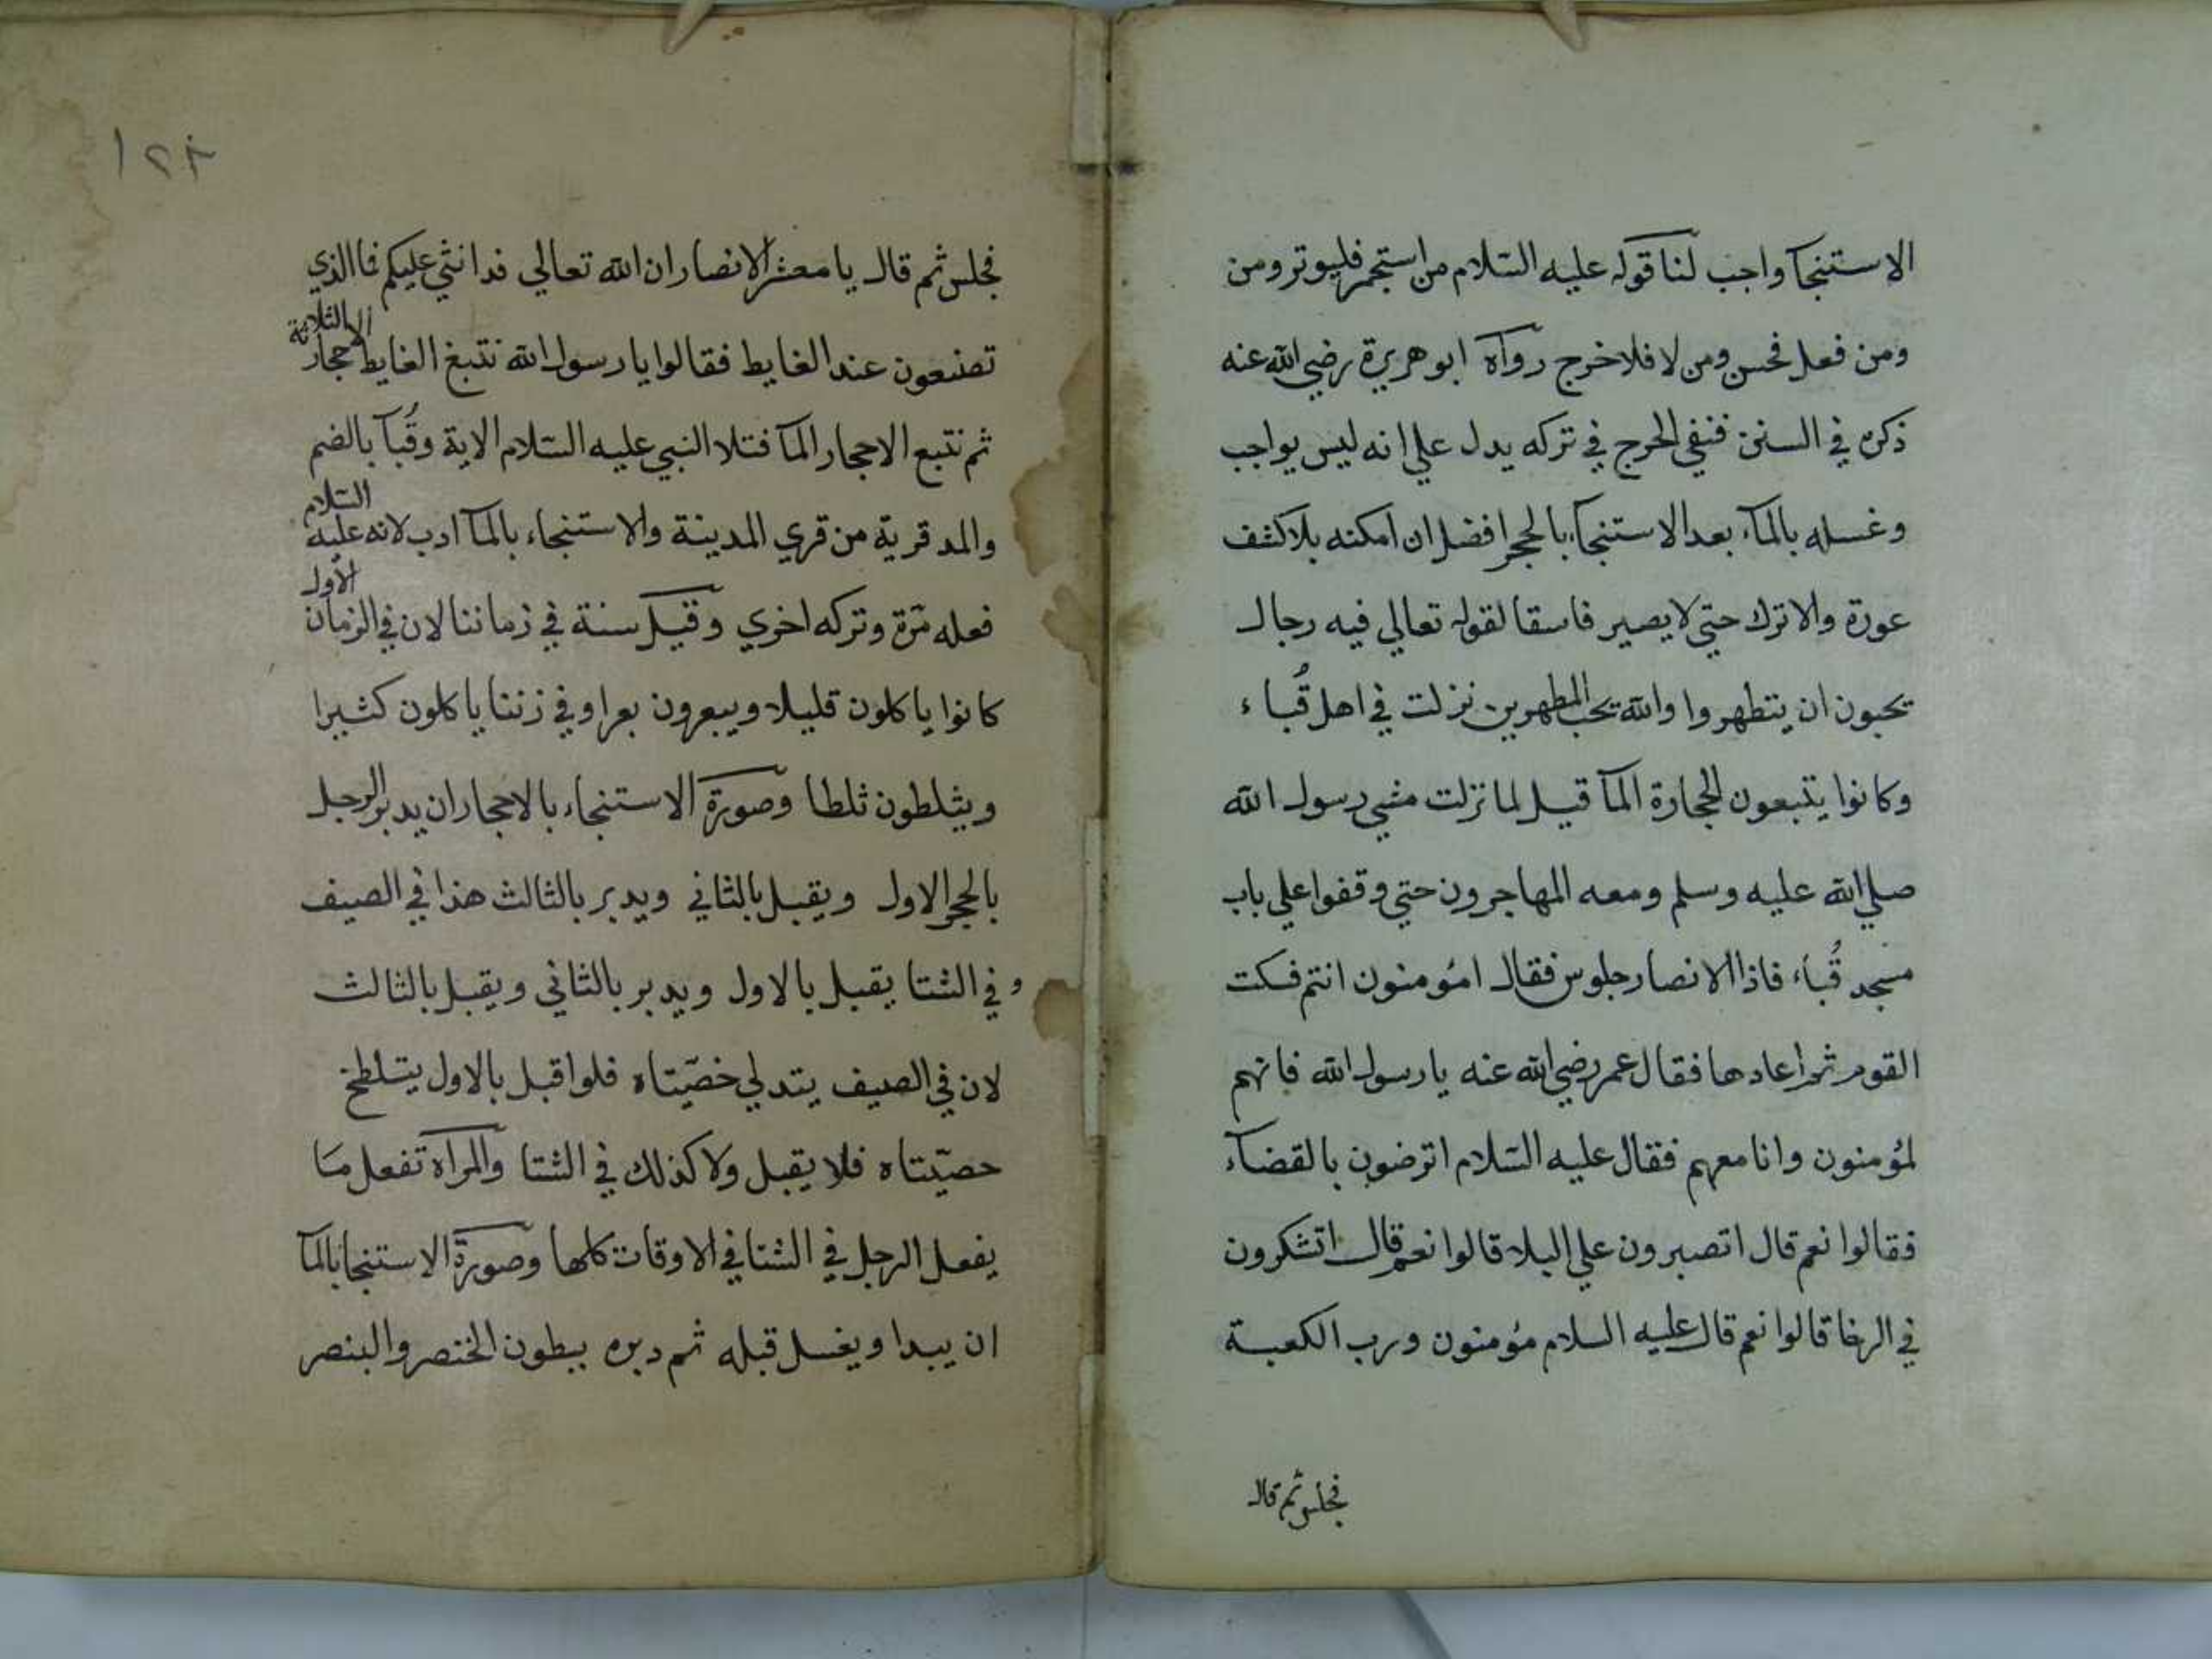 الاستنجآ واجب لنا قوله عليه السّلام من استجمر فليوتر ومن
ومن فعل فحسن ومن لا فلا خرج رواه ابو هريرة رضي الله عنه
ذكره في السنن فنفي الحرج في تركه يدل علي انه ليس يواجب
وغسله بالمآء بعد الاستنجآء بالحجر افضل ان امكنه بلا كشف
عورة والا ترك حتي لا يصير فاسقا لقوله تعالي فيه رجال
يحبون ان يتطهروا والله يحب المطهرين نزلت في اهل قُباء
وكانوا يتبعون الحجارة المآ قيل لما نزلت مشي رسول الله
صلي الله عليه وسلم ومعه المهاجرون حتي وقفوا علي باب
مسجد قُباء فاذا الانصار جلوس فقال امؤمنون انتم فسكت
القوم ثم اعادها فقال عمر رضي الله عنه يا رسول الله فانهم
لمؤمنون وانا معهم فقال عليه السّلام اترضون بالقضآء
فقالوا نعم قال اتصبرون علي البلا قالوا نعم قال اتشكرون
في الرخا قالوا نعم قال عليه السلام مؤمنون ورب الكعبة
فجلس ثم قال
١٢٤
فجلس ثم قال يا معشر الانصار ان الله تعالي قد اثني عليكم فما الذي
تصنعون عند الغايط فقالوا يا رسول الله نتبع الغايط الاحجار الثلاثة
ثم نتبع الاحجار المآ فتلا النبي عليه السّلام الاية وقُبآ بالضم
والمد قرية من قري المدينة والاستنجاء بالمآ ادب لانه عليه السّلام
فعله مرّة وتركه اخري وقيل سنة في زماننا لان في الزمان الاول
كانوا ياكلون قليلا ويبعرون بعرا وفي زننا ياكلون كثيرا
ويثلطون ثلطا وصورة الاستنجاء بالاحجار ان يدبر الرجل
بالحجر الاول ويقبل بالثاني ويدبر بالثالث هذا في الصيف
وفي الشتا يقبل بالاول ويدبر بالثاني ويقبل بالثالث
لان في الصيف يتدلي خصيّتاه فلو اقبل بالاول يتلطخ
خصيّتاه فلا يقبل ولا كذلك في الشتا والمراة تفعل ما
يفعل الرجل في الشتا في الاوقات كلها وصورة الاستنجا بالمآ
ان يبدا ويغسل قبله ثم دبره ببطون الخنصر والبنصر